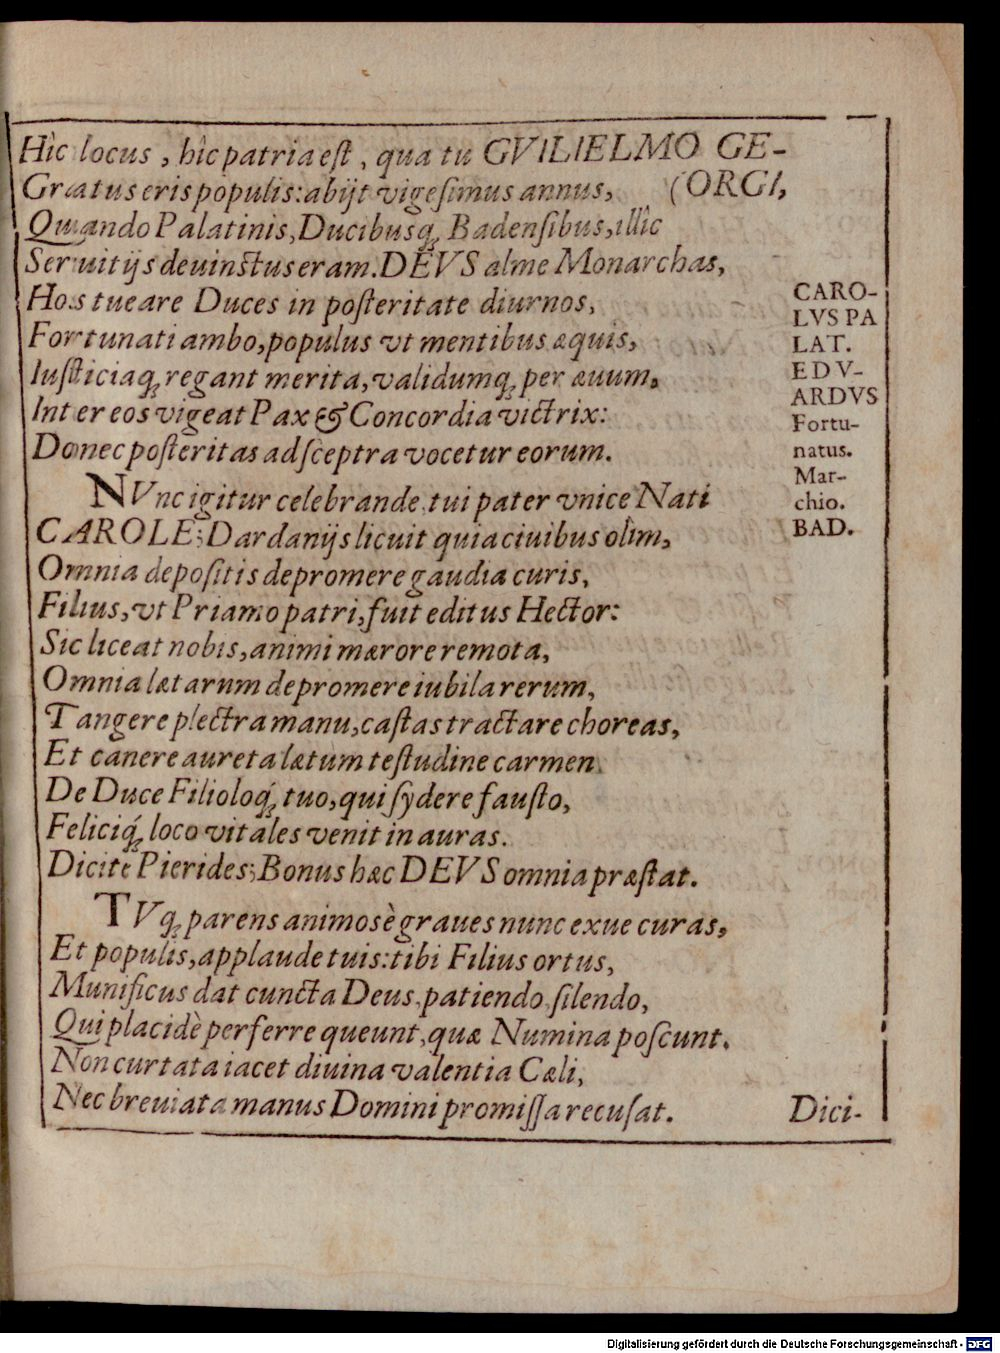 Hìc locus, hìc patria est, qua tu GVILIELMO GE-
Gratus eris populis: abijt vigesimus annus, (ORGI,
Quando Palatinis, Ducibusq́; Badensibus, illîc
Seruitijs deuinctus eram. DEVS alme Monarchas,
Hos tueare Duces in posteritate diurnos,
Fortunati ambo, populus vt mentibus æquis,
Iusticiaq; regant merita, validumq; per æuum,
Inter eos vigeat Pax & Concordia victrix:
Donec posteritas ad sceptra vocetur eorum.
NVnc igitur celebrande, tui pater vnice Nati
CAROLE; Dardanijs licuit quia ciuibus olim,
Omnia depositis depromere gaudia curis,
Filius, vt Priamo patri, fuit editus Hector:
Sic liceat nobis, animi mærore remota,
Omnia lætarum depromere iubila rerum,
Tangere plectra manu, castas tractare choreas,
Et canere aureta lætum testudine carmen.
De Duce Filioloq́; tuo, qui sydere fausto,
Feliciq́; loco vitales venit in auras.
Dicite Pierides; Bonus hæc DEVS omnia præstat.
TVq; parens animosè graues nunc exue curas,
Et populis, applaude tuis: tibi Filius ortus,
Munificus dat cuncta Deus, patiendo, silendo,
Qui placidè perferre queunt, quæ Numina poscunt.
Non curtata iacet diuina valentia Cæli,
Nec breuiata manus Domini promissa recusat.
Dici-
CARO-
LVS PA
LAT.
EDV-
ARDVS
Fortu-
natus.
Mar-
chio.
BAD.
Digitalisierung gefördert durch die Deutsche Forschungsgemeinschaft - DFG